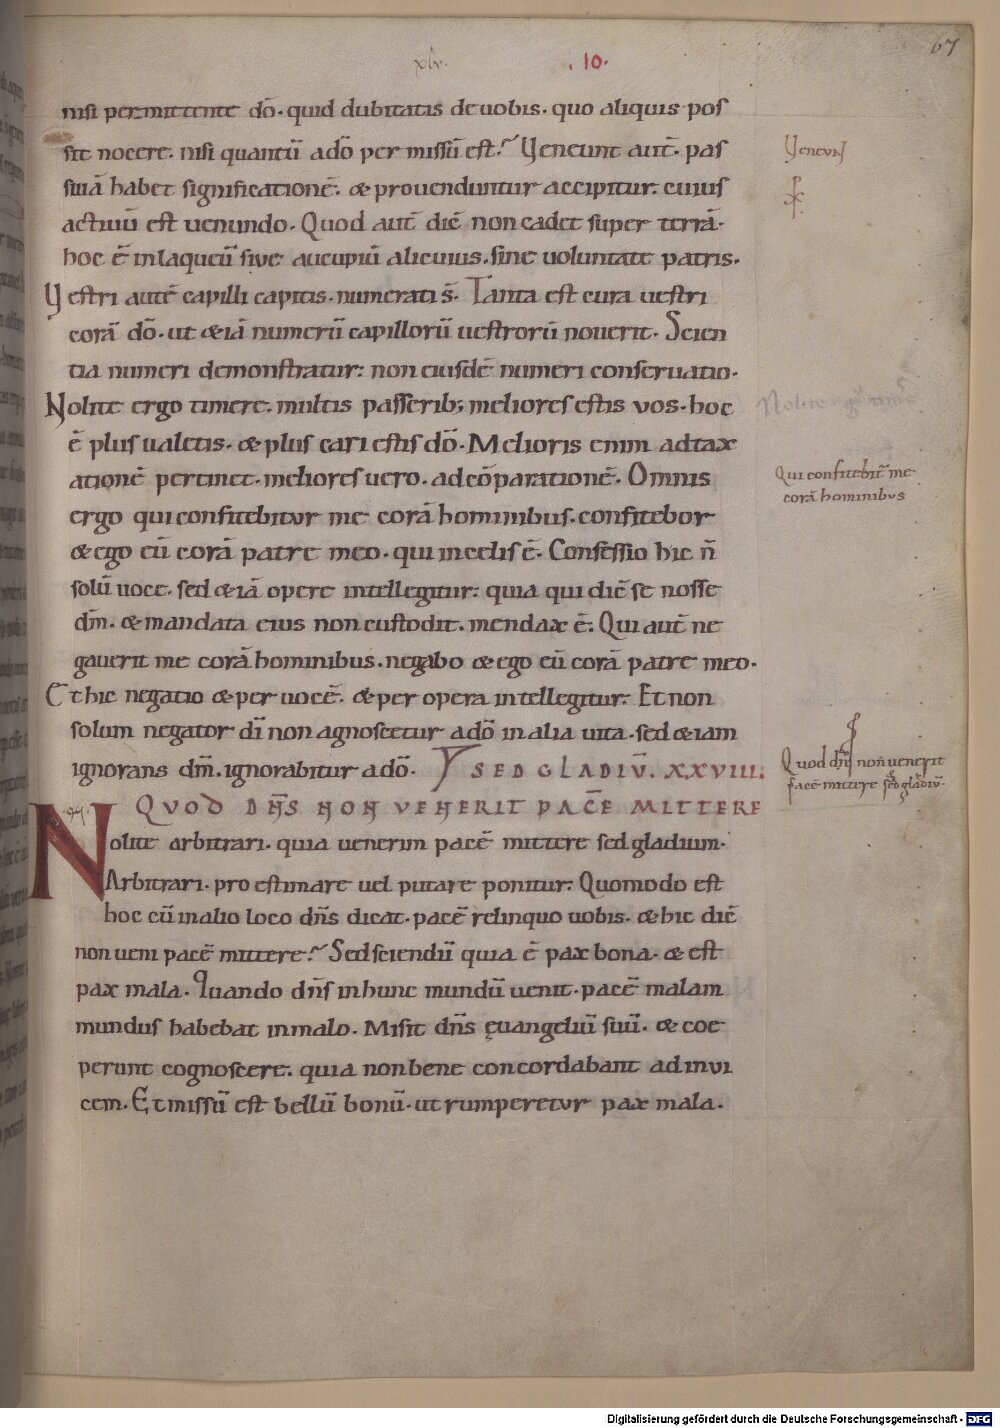 67
xlv.
.10.
nisi permittente dō. quid dubitatis de uobis. quo aliquis pos
sit nocere. nisi quantū a dō permissū est? Veneunt aut̄. pas
siuā habet significationē. & prouenduntur accipitur. cuius
actiuū est uenundo. Quod aut̄ dic̄ non cadet super terrā.
hoc ē in laqueū siue aucupiū alicuius. sine uoluntate patris.
Vestri autē capilli capitis. numerati s̄. Tanta est cura uestri
corā dō. ut &iā numerū capillorū uestrorū nouerit. Scien
tia numeri demonstratur. non eiusdē numeri conseruatio.
Nolite ergo timere. multis passerib; meliores estis vos. hoc
ē plus ualetis. & plus cari estis dō. Melioris enim ad tax
ationē pertinet. meliores uero. ad cōparationē. Omnis
ergo qui confitebitur me corā hominibus. confitebor
& ego eū corā patre meo. qui in celis ē. Confessio hic n̄
solū uoce. sed &iā opere intellegitur. quia qui dic̄ se nosse
dm̄. & mandata eius non custodit. mendax ē. Qui aut̄ ne
gauerit me corā hominibus. negabo & ego eū corā patre meo.
Et hic negatio & per uocē. & per opera intellegitur. Et non
solum negator dī non agnoscetur a dō in alia uita. sed &iam
ignorans dm̄. ignorabitur a dō. SED GLADIV̄. XXVIII.
QVOD DN̄S NON VENERIT PACĒ MITTERE
Nolite arbitrari. quia uenerim pacē mittere sed gladium.
Arbitrari. pro estimare uel putare ponitur. Quomodo est
hoc cū in alio loco dn̄s dicat. pacē relinquo uobis. & hic dic̄
non ueni pacē mittere? Sed sciendū quia ē pax bona. & est
pax mala. Quando dn̄s in hunc mundū uenit. pacē malam
mundus habebat in malo. Misit dn̄s ęuangeliū suū. & coe
perunt cognoscere. quia non bene concordabant ad inui
cem. Et missū est bellū bonū. ut rumperetur pax mala.
Veneunt
Nolite ergo timere
Qui confitebit̄ me
corā hominibus
Quod dn̄s non uenerit
pacē mittere sed gladiū.
Digitalisierung gefördert durch die Deutsche Forschungsgemeinschaft - DFG